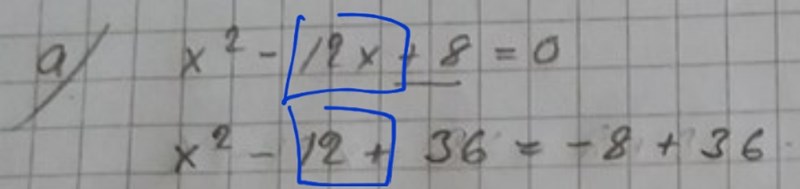 a) x² - 12x + 8 = 0
x² - 12 + 36 = -8 + 36